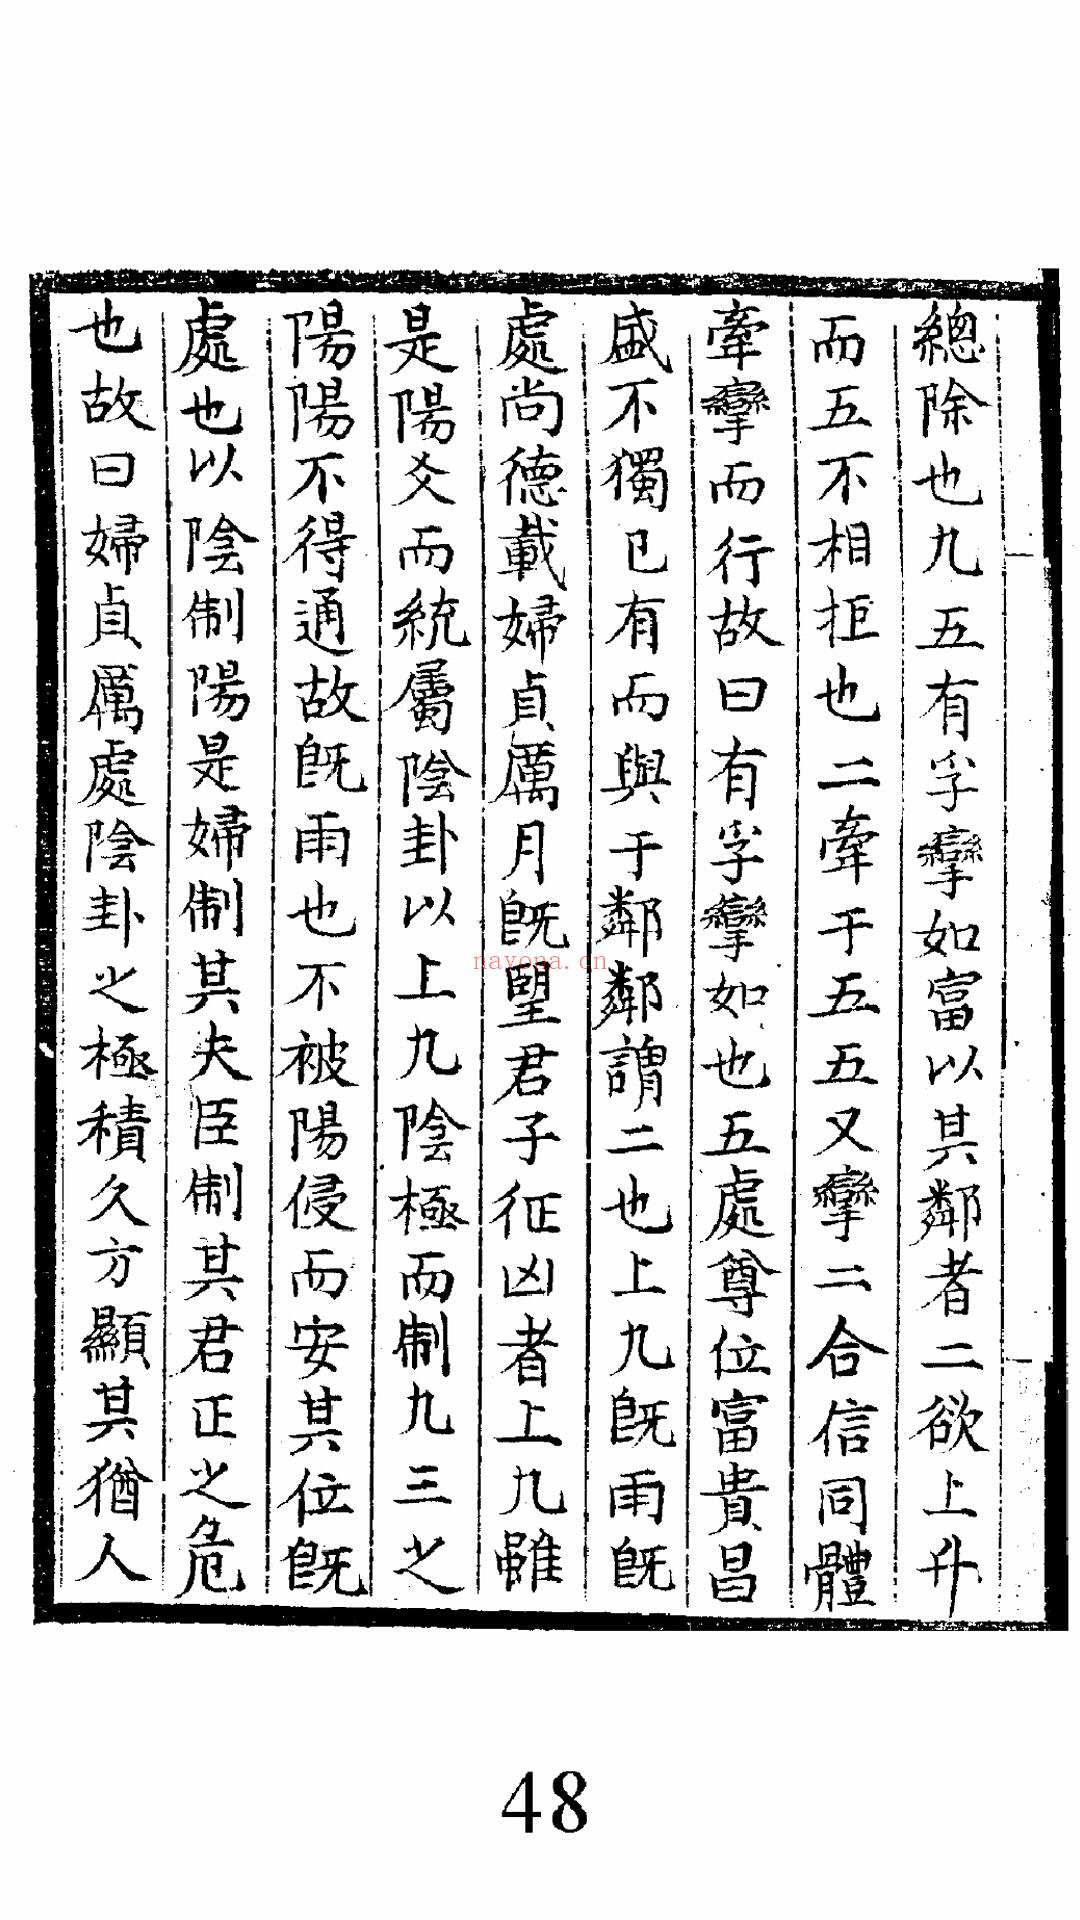 總除也九五有孚攣如富以其鄰者二欲上升
而五不相拒也二牽于五五又攣二合信同體
牽攣而行故曰有孚攣如也五處尊位富貴昌
盛不獨已有而與于鄰鄰謂二也上九旣雨旣
處尚德載婦貞厲月旣朢君子征凶者上九雖
是陽爻而統屬陰卦以上九陰極而制九三之
陽陽不得通故旣雨也不被陽侵而安其位旣
處也以陰制陽是婦制其夫臣制其君正之危
也故曰婦貞厲處陰卦之極積久方顯其猶人
nayona.cn
48